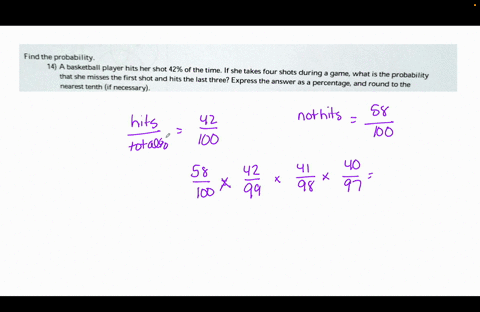 Find the probability.
14) A basketball player hits her shot 42% of the time. If she takes four shots during a game, what is the probability
that she misses the first shot and hits the last three? Express the answer as a percentage, and round to the
nearest tenth (if necessary).
hits / total = 42 / 100
not hits = 58 / 100
58/100 × 42/99 × 41/98 × 40/97 =